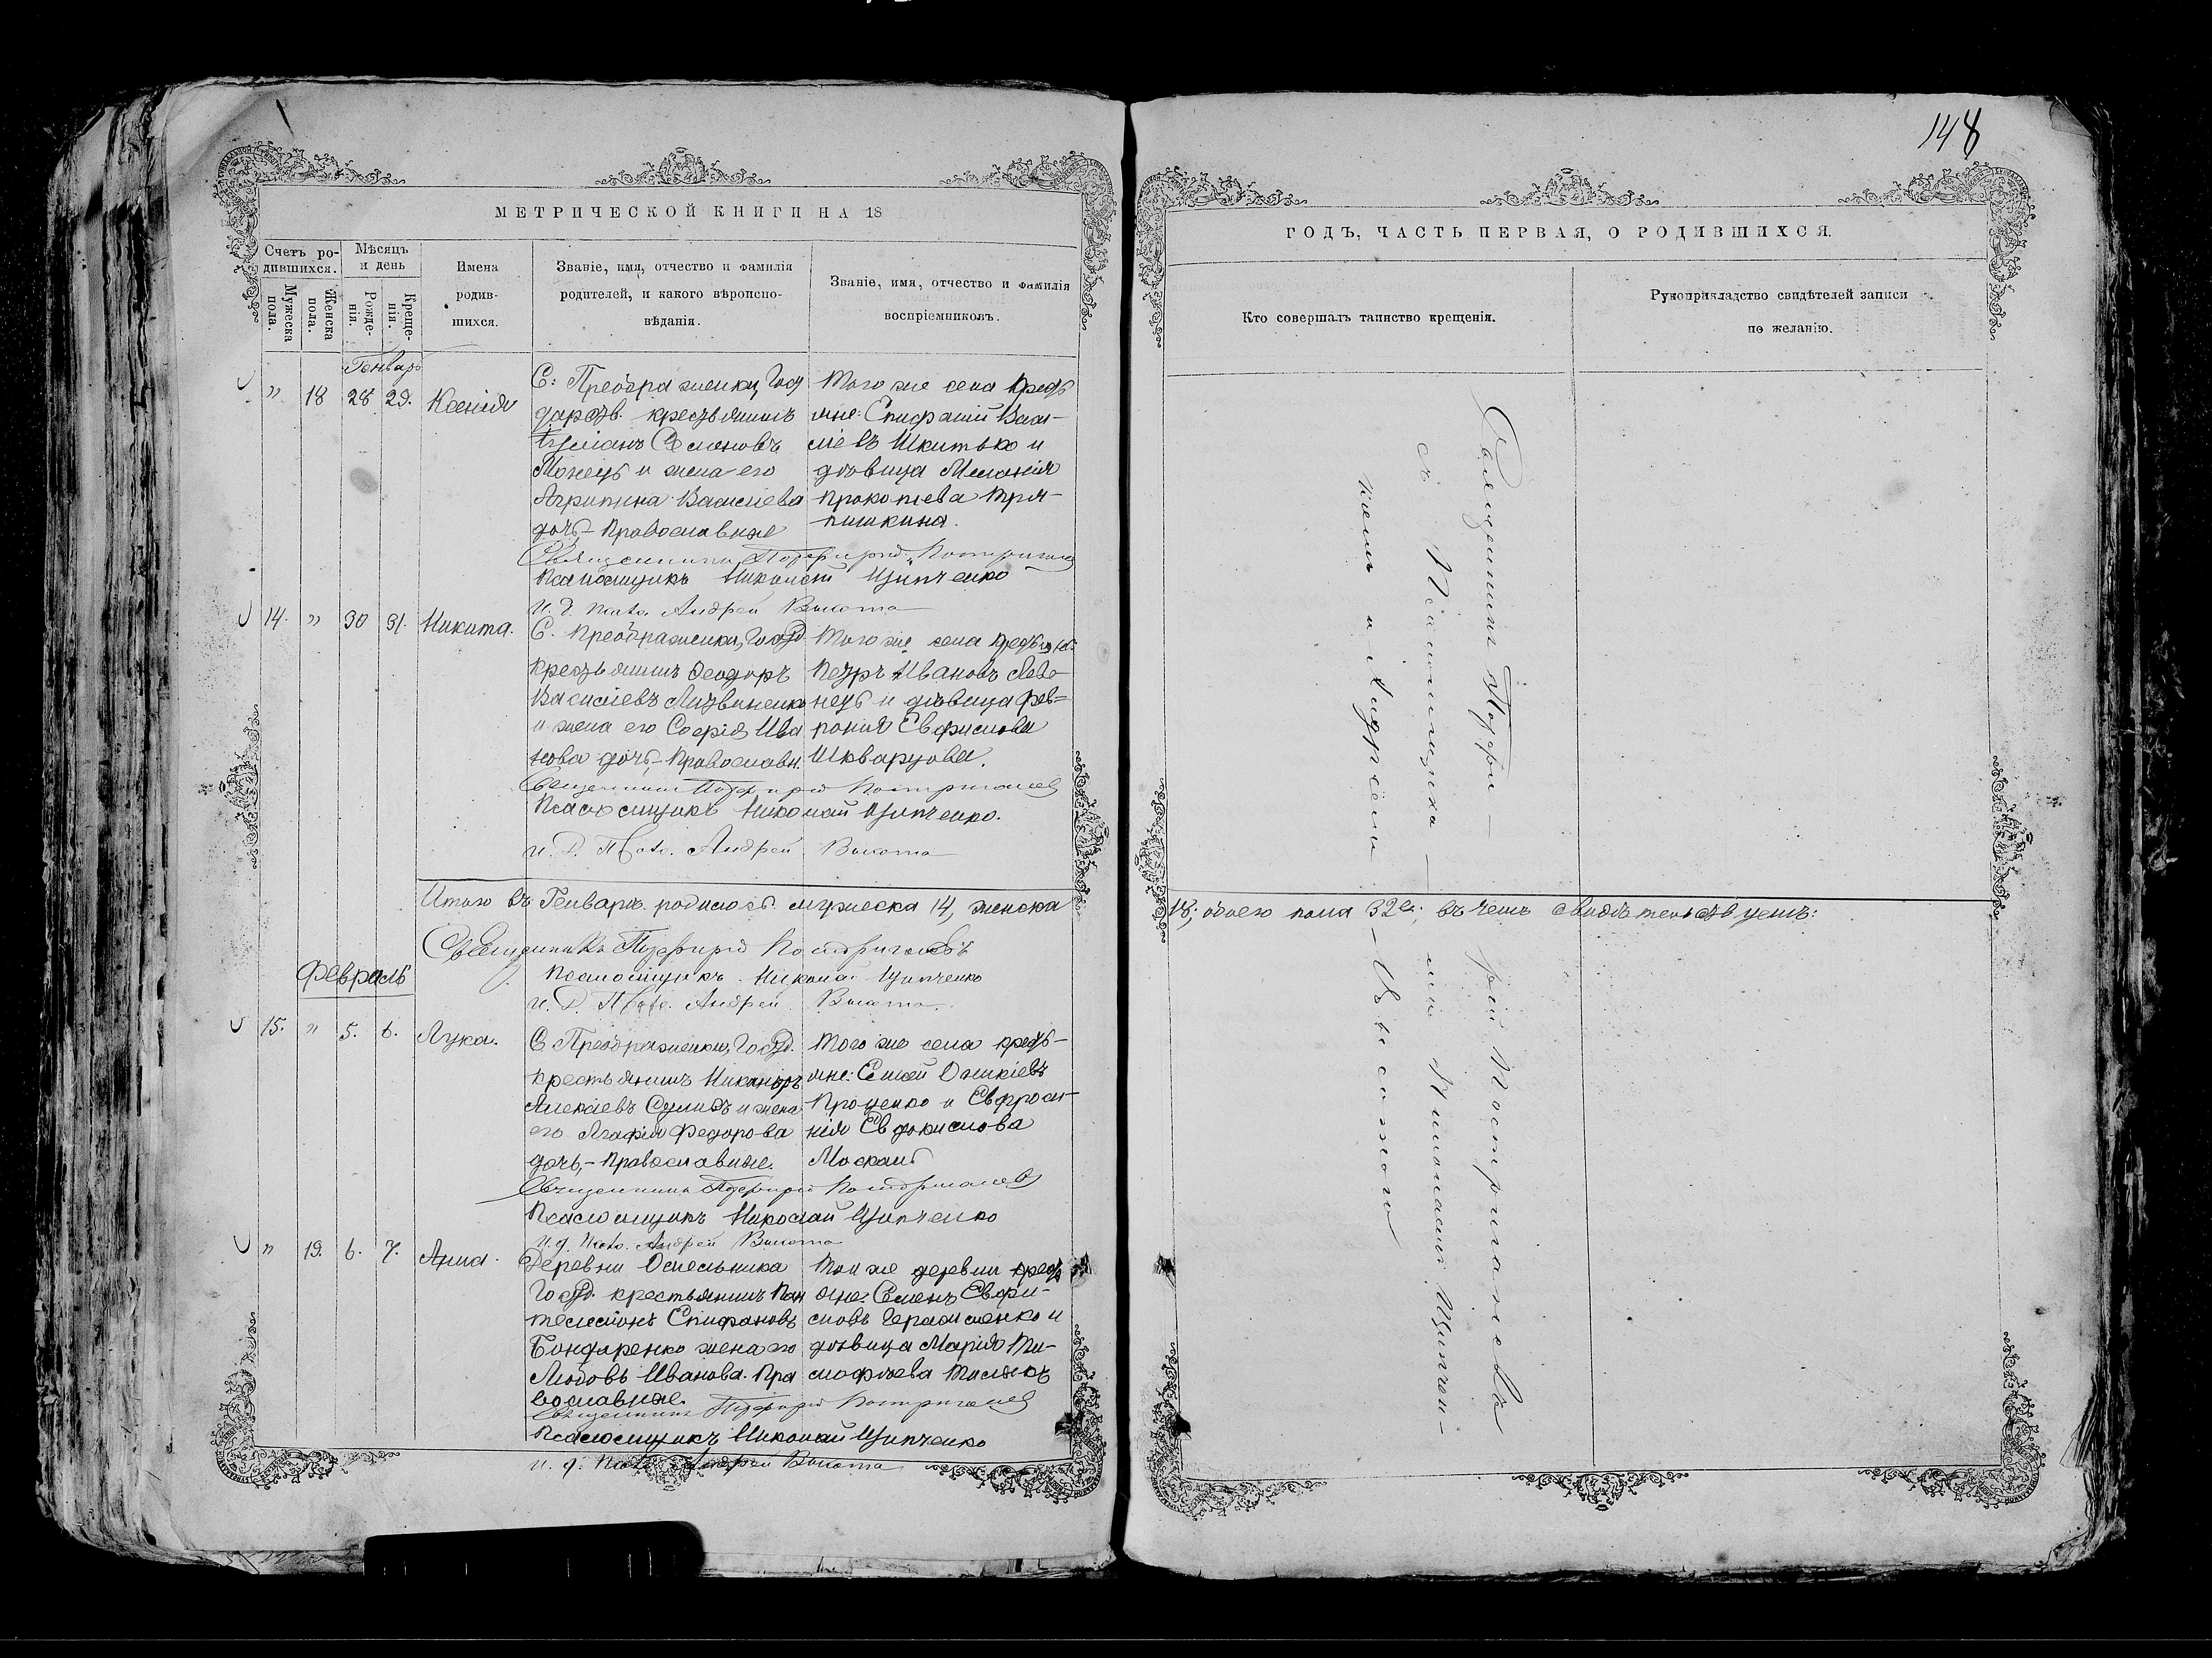 148
МЕТРИЧЕСКОЙ КНИГИ НА 18
Счетъ ро-
дившихся.
Мужеска пола.
Женска пола.
Мѣсяцъ
и день
Рожде-
нія.
Креще-
нія.
Имена
родив-
шихся.
Званіе, имя, отчество и фамилія
родителей, и какого вѣроиспо-
вѣданія.
Званіе, имя, отчество и фамилія
воспріемниковъ.
Генварь
" 18 28 29. Ксенія
С: Преображенки, Госу
дарств. крестьянинъ
Семеновъ
и жена его
Агрипина Василіева
дочь,- православные
Того же села крест
яне: Епифаній Васи-
ліевъ Шкитько и
дѣвица Меланія
Прокопіева Тря-
пичкина.
Священникъ Порфирій Костригановъ
Псаломщикъ Николай Ципченко
И. д. Псало. Андрей Высота
14. " 30 31. Никита.
С. Преображенки, Госуд
крестьянинъ Феодоръ
Василіевъ Литвиненко
и жена его Софія Ива
нова дочь,- православн.
Того же села крестьяне:
Петръ Ивановъ
и дѣвица Фев-
ронія Евфимова
Шкварцова.
Священникъ Порфирій Костригановъ
Псаломщикъ Николай Ципченко.
и. д. Псало. Андрей Высота
Итого въ Генварѣ родилось мужеска 14, женска
Священникъ Порфирій Костригановъ
Псаломщикъ Николай Ципченко
и. д. Псало. Андрей Высота.
Февраль
15. " 5. 6. Лука.
С Преображенки, Госуд.
крестьянинъ Никаноръ
Алексіевъ и жена
его Агафія Федорова
дочь,- православные.
Того же села крестъ-
яне:
Проценко и Евфроси-
нія Евдокимова
Москаль
Священникъ Порфирій Костригановъ
Псаломщикъ Николай Ципченко
и. д. Псало. Андрей Высота
" 19. 6. 7. Анна.
Деревни
Госуд. крестьянинъ Пан
телеймонъ Епифановъ
Бондаренко жена его
Любовь Иванова. Пра
вославные.
Той же деревни крест
яне: Семенъ Евфи-
мовъ Герасименко и
дѣвица Марія Ти-
мофѣева
Священникъ Порфирій Костригановъ
Псаломщикъ Николай Ципченко
и. д. Псало. Андрей Высота
ГОДЪ, ЧАСТЬ ПЕРВАЯ, О РОДИВШИХСЯ.
Кто совершалъ таинство крещенія.
Рукоприкладство свидѣтелей записи
по желанію.
Священникъ Порфи-
рій Костригановъ
съ Псаломщико-
мъ Николаемъ Ципчен-
комъ и Андреемъ
Высотою
18; обоего пола 32а; въ чемъ свидѣтельствуемъ: